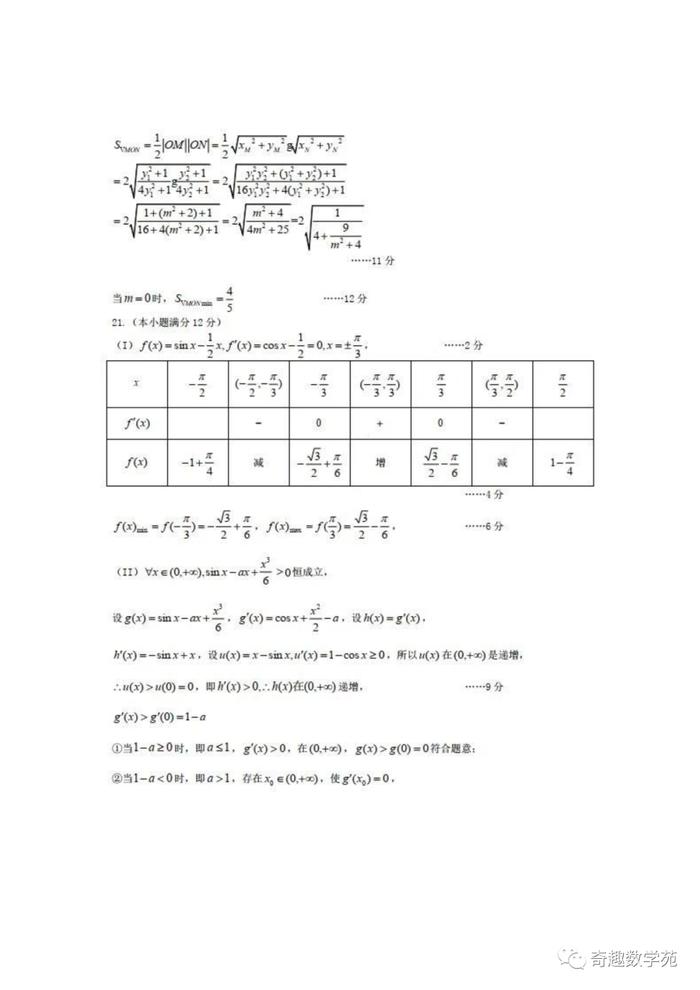 S_{∇MON} = \frac{1}{2}|OM||ON| = \frac{1}{2}\sqrt{x_M^2+y_M^2}g\sqrt{x_N^2+y_N^2}
= 2\sqrt{\frac{y_1^2+1}{4y_1^2+1}g\frac{y_2^2+1}{4y_2^2+1}} = 2\sqrt{\frac{y_1^2y_2^2+(y_1^2+y_2^2)+1}{16y_1^2y_2^2+4(y_1^2+y_2^2)+1}}
= 2\sqrt{\frac{1+(m^2+2)+1}{16+4(m^2+2)+1}} = 2\sqrt{\frac{m^2+4}{4m^2+25}} =2\sqrt{\frac{1}{4+\frac{9}{m^2+4}}}
……11 分
当m=0时，S_{∇MON min} = \frac{4}{5} ……12 分
21.（本小题满分 12 分）
(I) f(x)=sin x-\frac{1}{2}x, f′(x)=cos x-\frac{1}{2}=0, x=±\frac{π}{3}， ……2 分
x -\frac{π}{2} (-\frac{π}{2},-\frac{π}{3}) -\frac{π}{3} (-\frac{π}{3},\frac{π}{3}) \frac{π}{3} (\frac{π}{3},\frac{π}{2}) \frac{π}{2}
f′(x) - 0 + 0 -
f(x) -1+\frac{π}{4} 减 -\frac{√3}{2}+\frac{π}{6} 增 \frac{√3}{2}-\frac{π}{6} 减 1-\frac{π}{4}
……4 分
f(x)_{min}=f(-\frac{π}{3})=-\frac{√3}{2}+\frac{π}{6}，f(x)_{max}=f(\frac{π}{3})=\frac{√3}{2}-\frac{π}{6}， ……6 分
(II) ∀x∈(0,+∞), sin x-ax+\frac{x^3}{6} >0恒成立，
设g(x)=sin x-ax+\frac{x^3}{6}，g′(x)=cos x+\frac{x^2}{2}-a，设h(x)=g′(x)，
h′(x)=-sin x+x，设u(x)=x-sin x, u′(x)=1-cos x≥0，所以u(x)在(0,+∞)是递增，
∴u(x)>u(0)=0，即h′(x)>0,∴h(x)在(0,+∞)递增， ……9 分
g′(x)>g′(0)=1-a
①当1-a≥0时，即a≤1，g′(x)>0，在(0,+∞)，g(x)>g(0)=0符合题意；
②当1-a<0时，即a>1，存在x_0∈(0,+∞)，使g′(x_0)=0，
奇趣数学苑